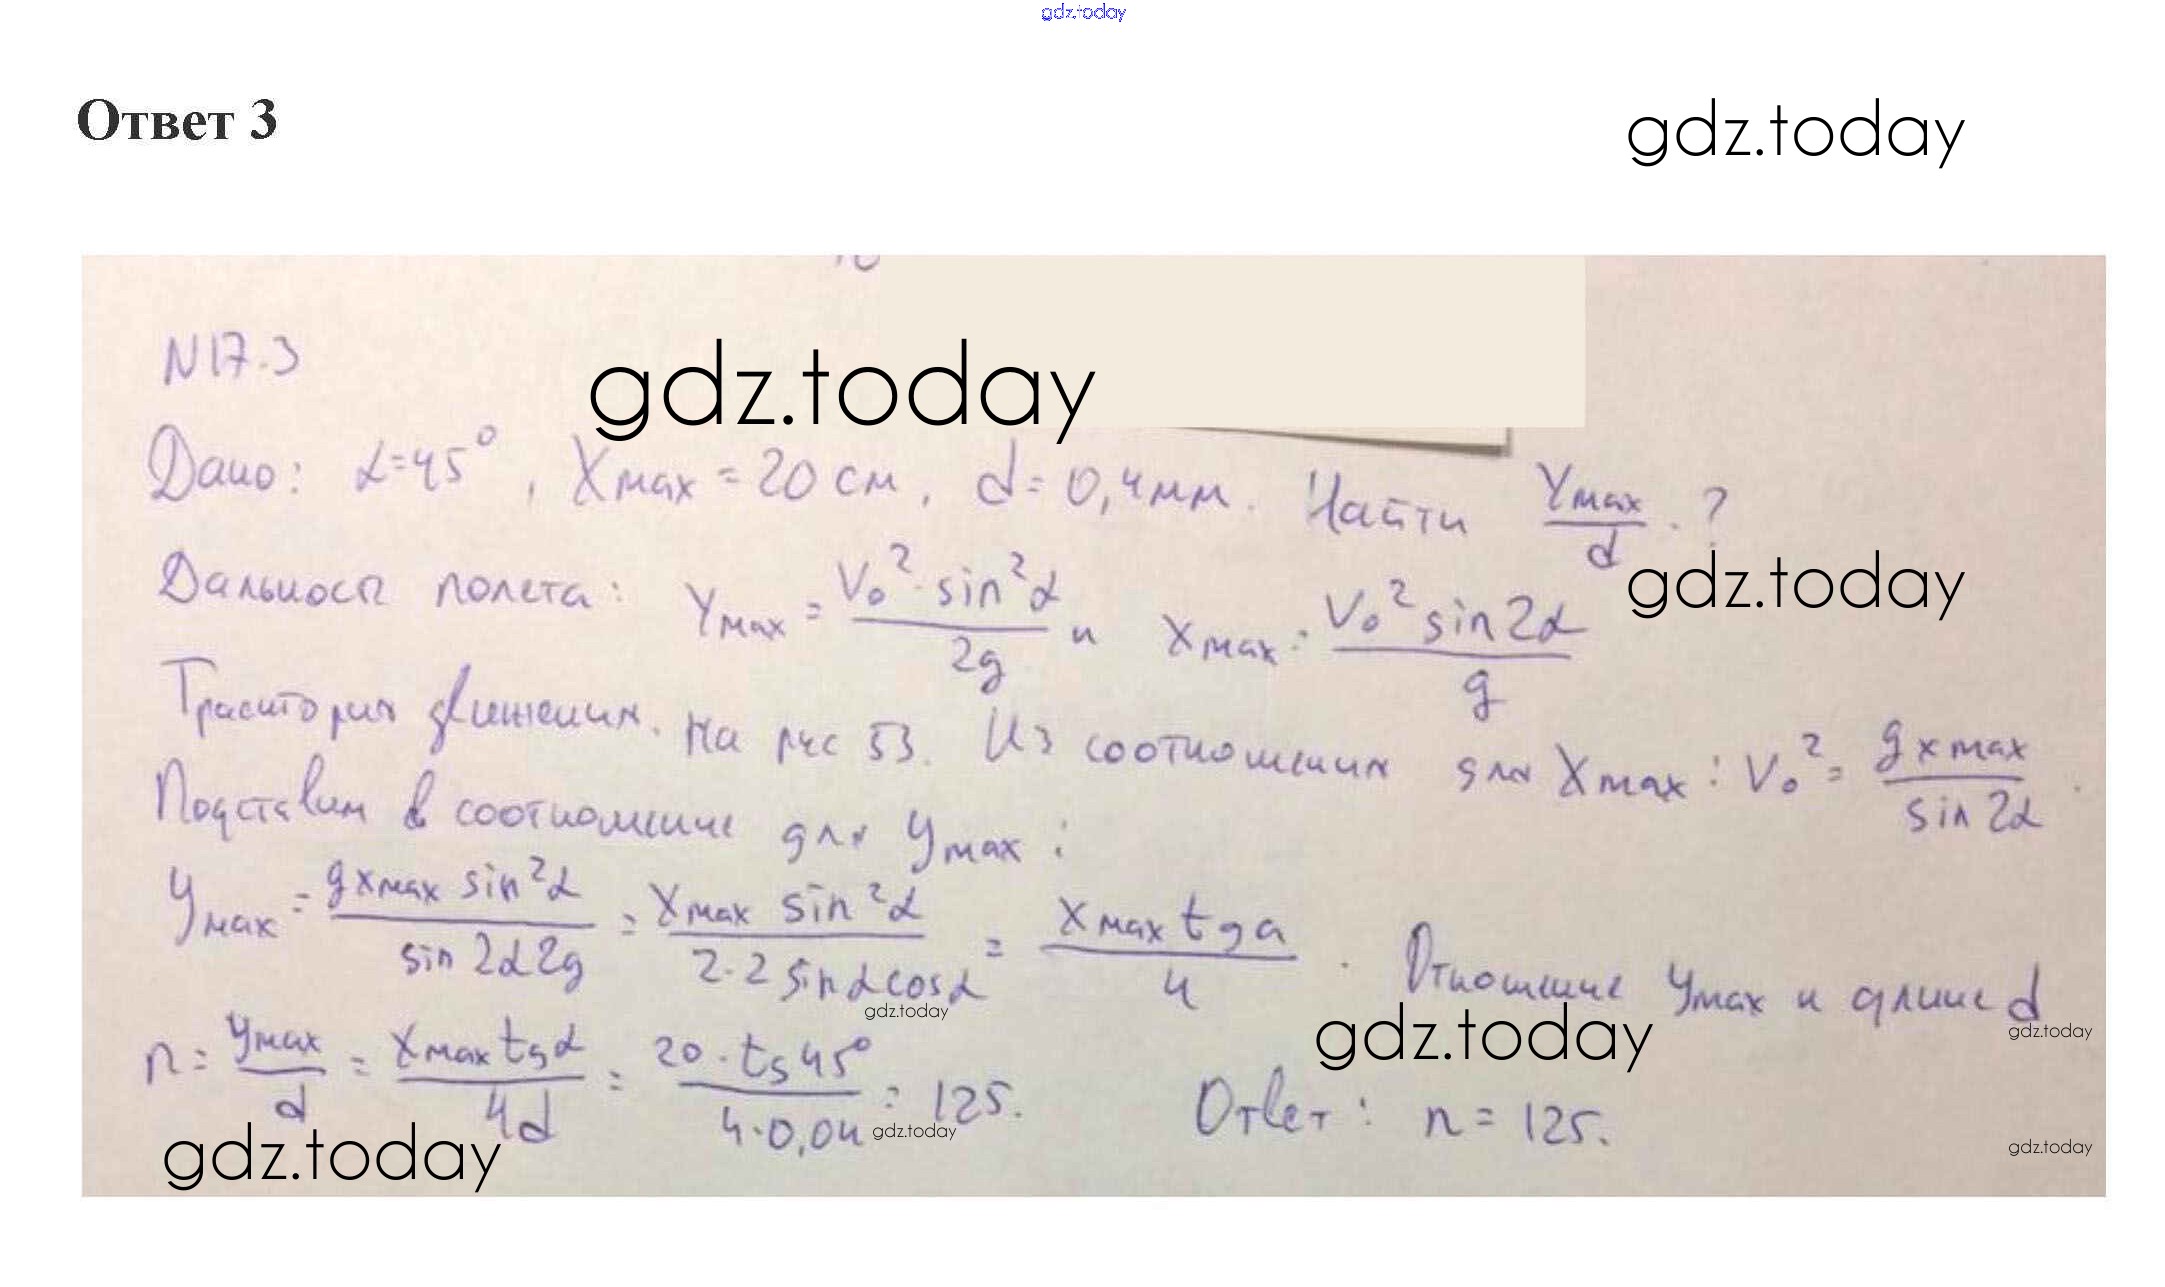 gdz.today
Ответ 3
gdz.today
N17.3
gdz.today
Дано: α=45°, Xmax = 20 см, d = 0,4 мм. Найти Ymax/d. ?
Дальность полета: Ymax = V₀²·sin²α/2g и Xmax = V₀² sin2α/g
gdz.today
Траектория движения. на рис 53. Из соотношения для Xmax: V₀² = gxmax/sin2α.
Подставим в соотношение для Ymax:
Ymax = gxmax sin²α/sin2α2g = Xmax sin²α/2·2sinαcosα = Xmax tga/4. Отношение Ymax и длине d
gdz.today
gdz.today
gdz.today
n = Ymax/d = Xmax tgα/4d = 20·tg45°/4·0,04 = 125. Ответ: n = 125.
gdz.today
gdz.today
gdz.today